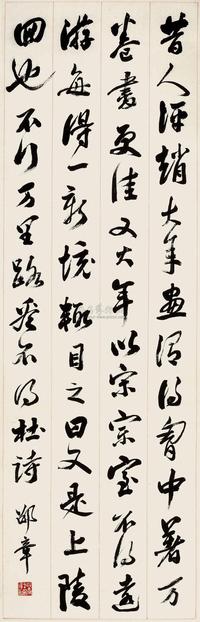 昔人評趙大年畫謂得胸中著万
卷書更佳又大年以宋宗室不得遠
游每得一新境輒目之曰又是上陵
回也不行万里路看不得杜詩 邵章